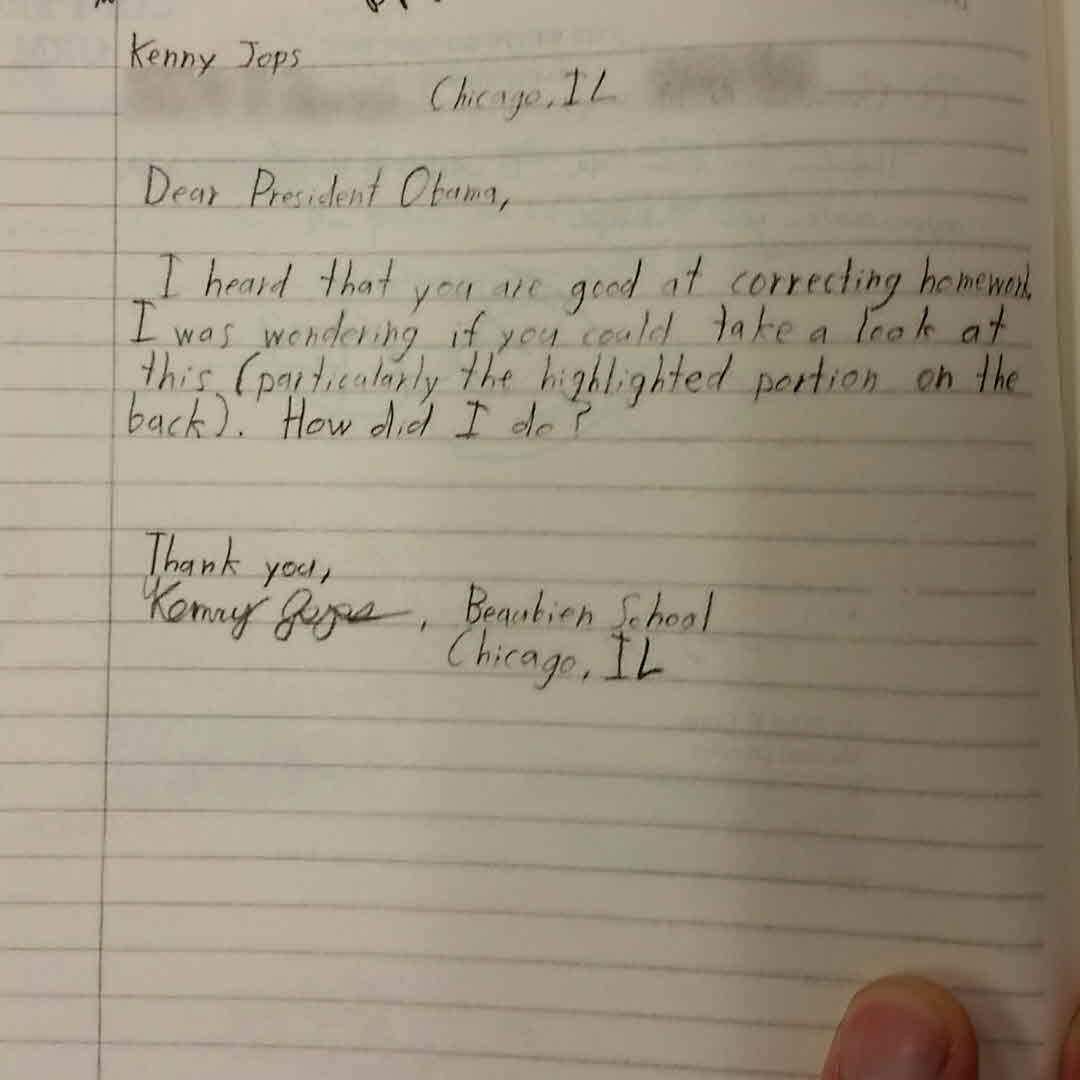 Kenny Jops
Chicago, IL
Dear President Obama,
I heard that you are good at correcting homework.
I was wondering if you could take a look at
this (particularly the highlighted portion on the
back). How did I do?
Thank you,
Kenny Jops, Beaubien School
Chicago, IL